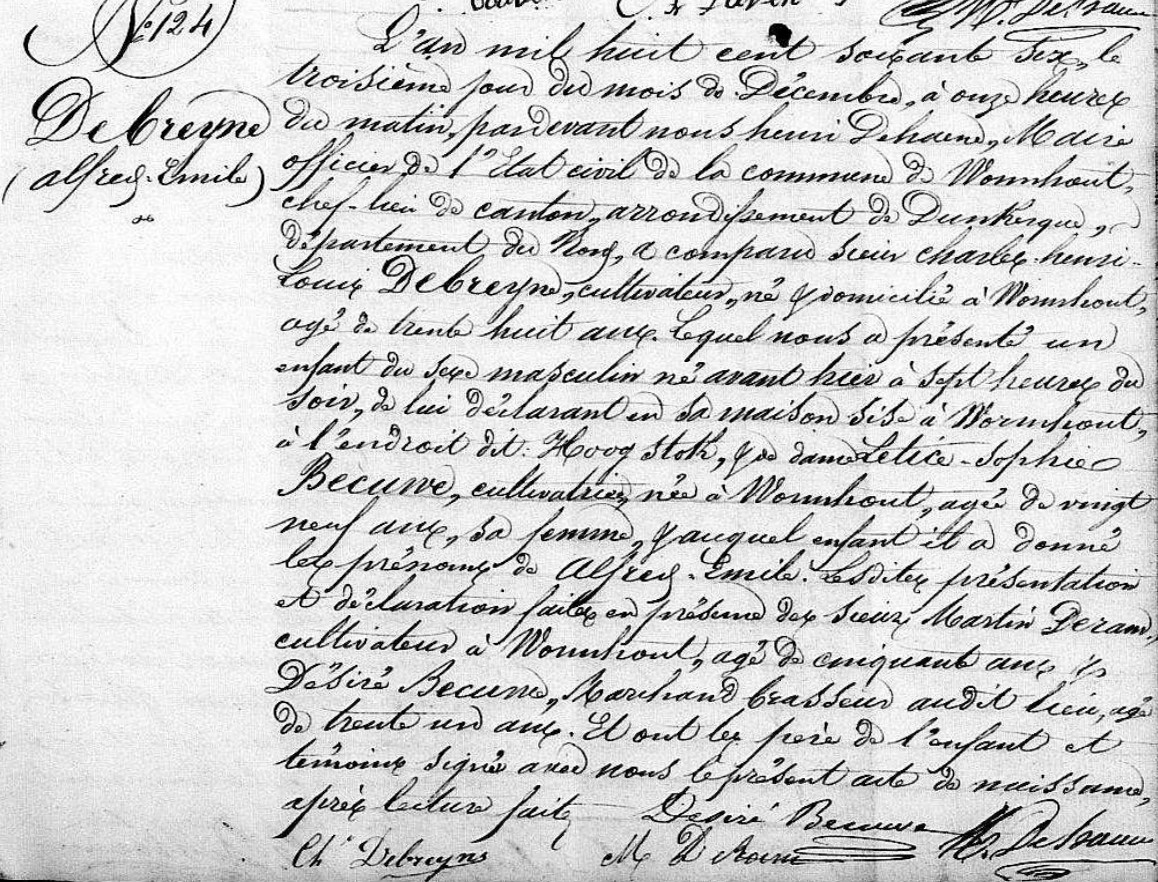 N° 124
Debreyne
(alfred-Emile)
L'an mil huit cent soixante six, le
troisième jour du mois de Décembre, à onze heures
du matin, pardevant nous henri Dehaene, Maire
officier de l'Etat civil de la commune de Wormhout,
chef-lieu de canton, arrondissement de Dunkerque,
département du Nord, a comparu sieur charles-henri-
Louis Debreyne, cultivateur, né & domicilié à Wormhout,
agé de trente huit ans. Lequel nous a présenté un
enfant du sexe masculin né avant hier à sept heures du
soir, de lui déclarant en sa maison sise à Wormhout,
à l'endroit dit: Hoog Stoth, & de dame Letice-Sophie
Becuwe, cultivatrice, née à Wormhout, agée de vingt
neuf ans, sa femme, & auquel enfant il a donné
les prénoms de Alfred-Emile. Lesdites présentation
et déclaration faites en présence des sieurs Martin Deram,
cultivateur à Wormhout, agé de cinquante ans &
Désiré Becuwe, Marchand brasseur audit lieu, agé
de trente un ans. Et ont les père de l'enfant et
témoins signé avec nous le présent acte de naissance,
après lecture faite
Desiré Becuwe
Ch Debreyne
M Deram
H. Dehaene